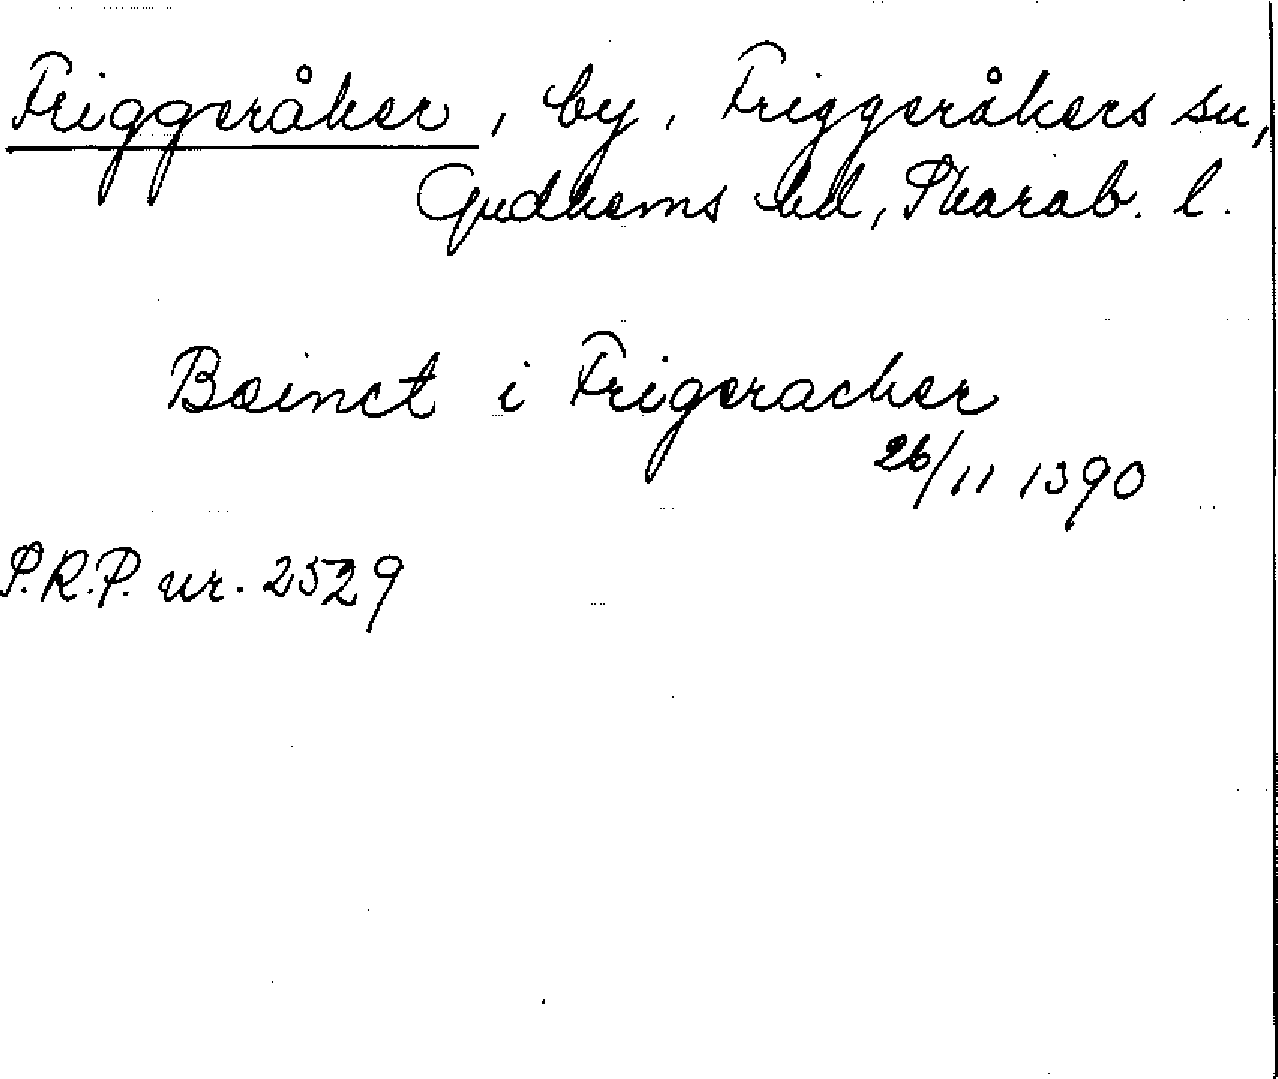 Friggeråker, by, Friggeråkers sn,
Gudhems hd, Skarab. l.
Boinct i Frigeracker
26/11 1390
S.R.P. nr. 2529